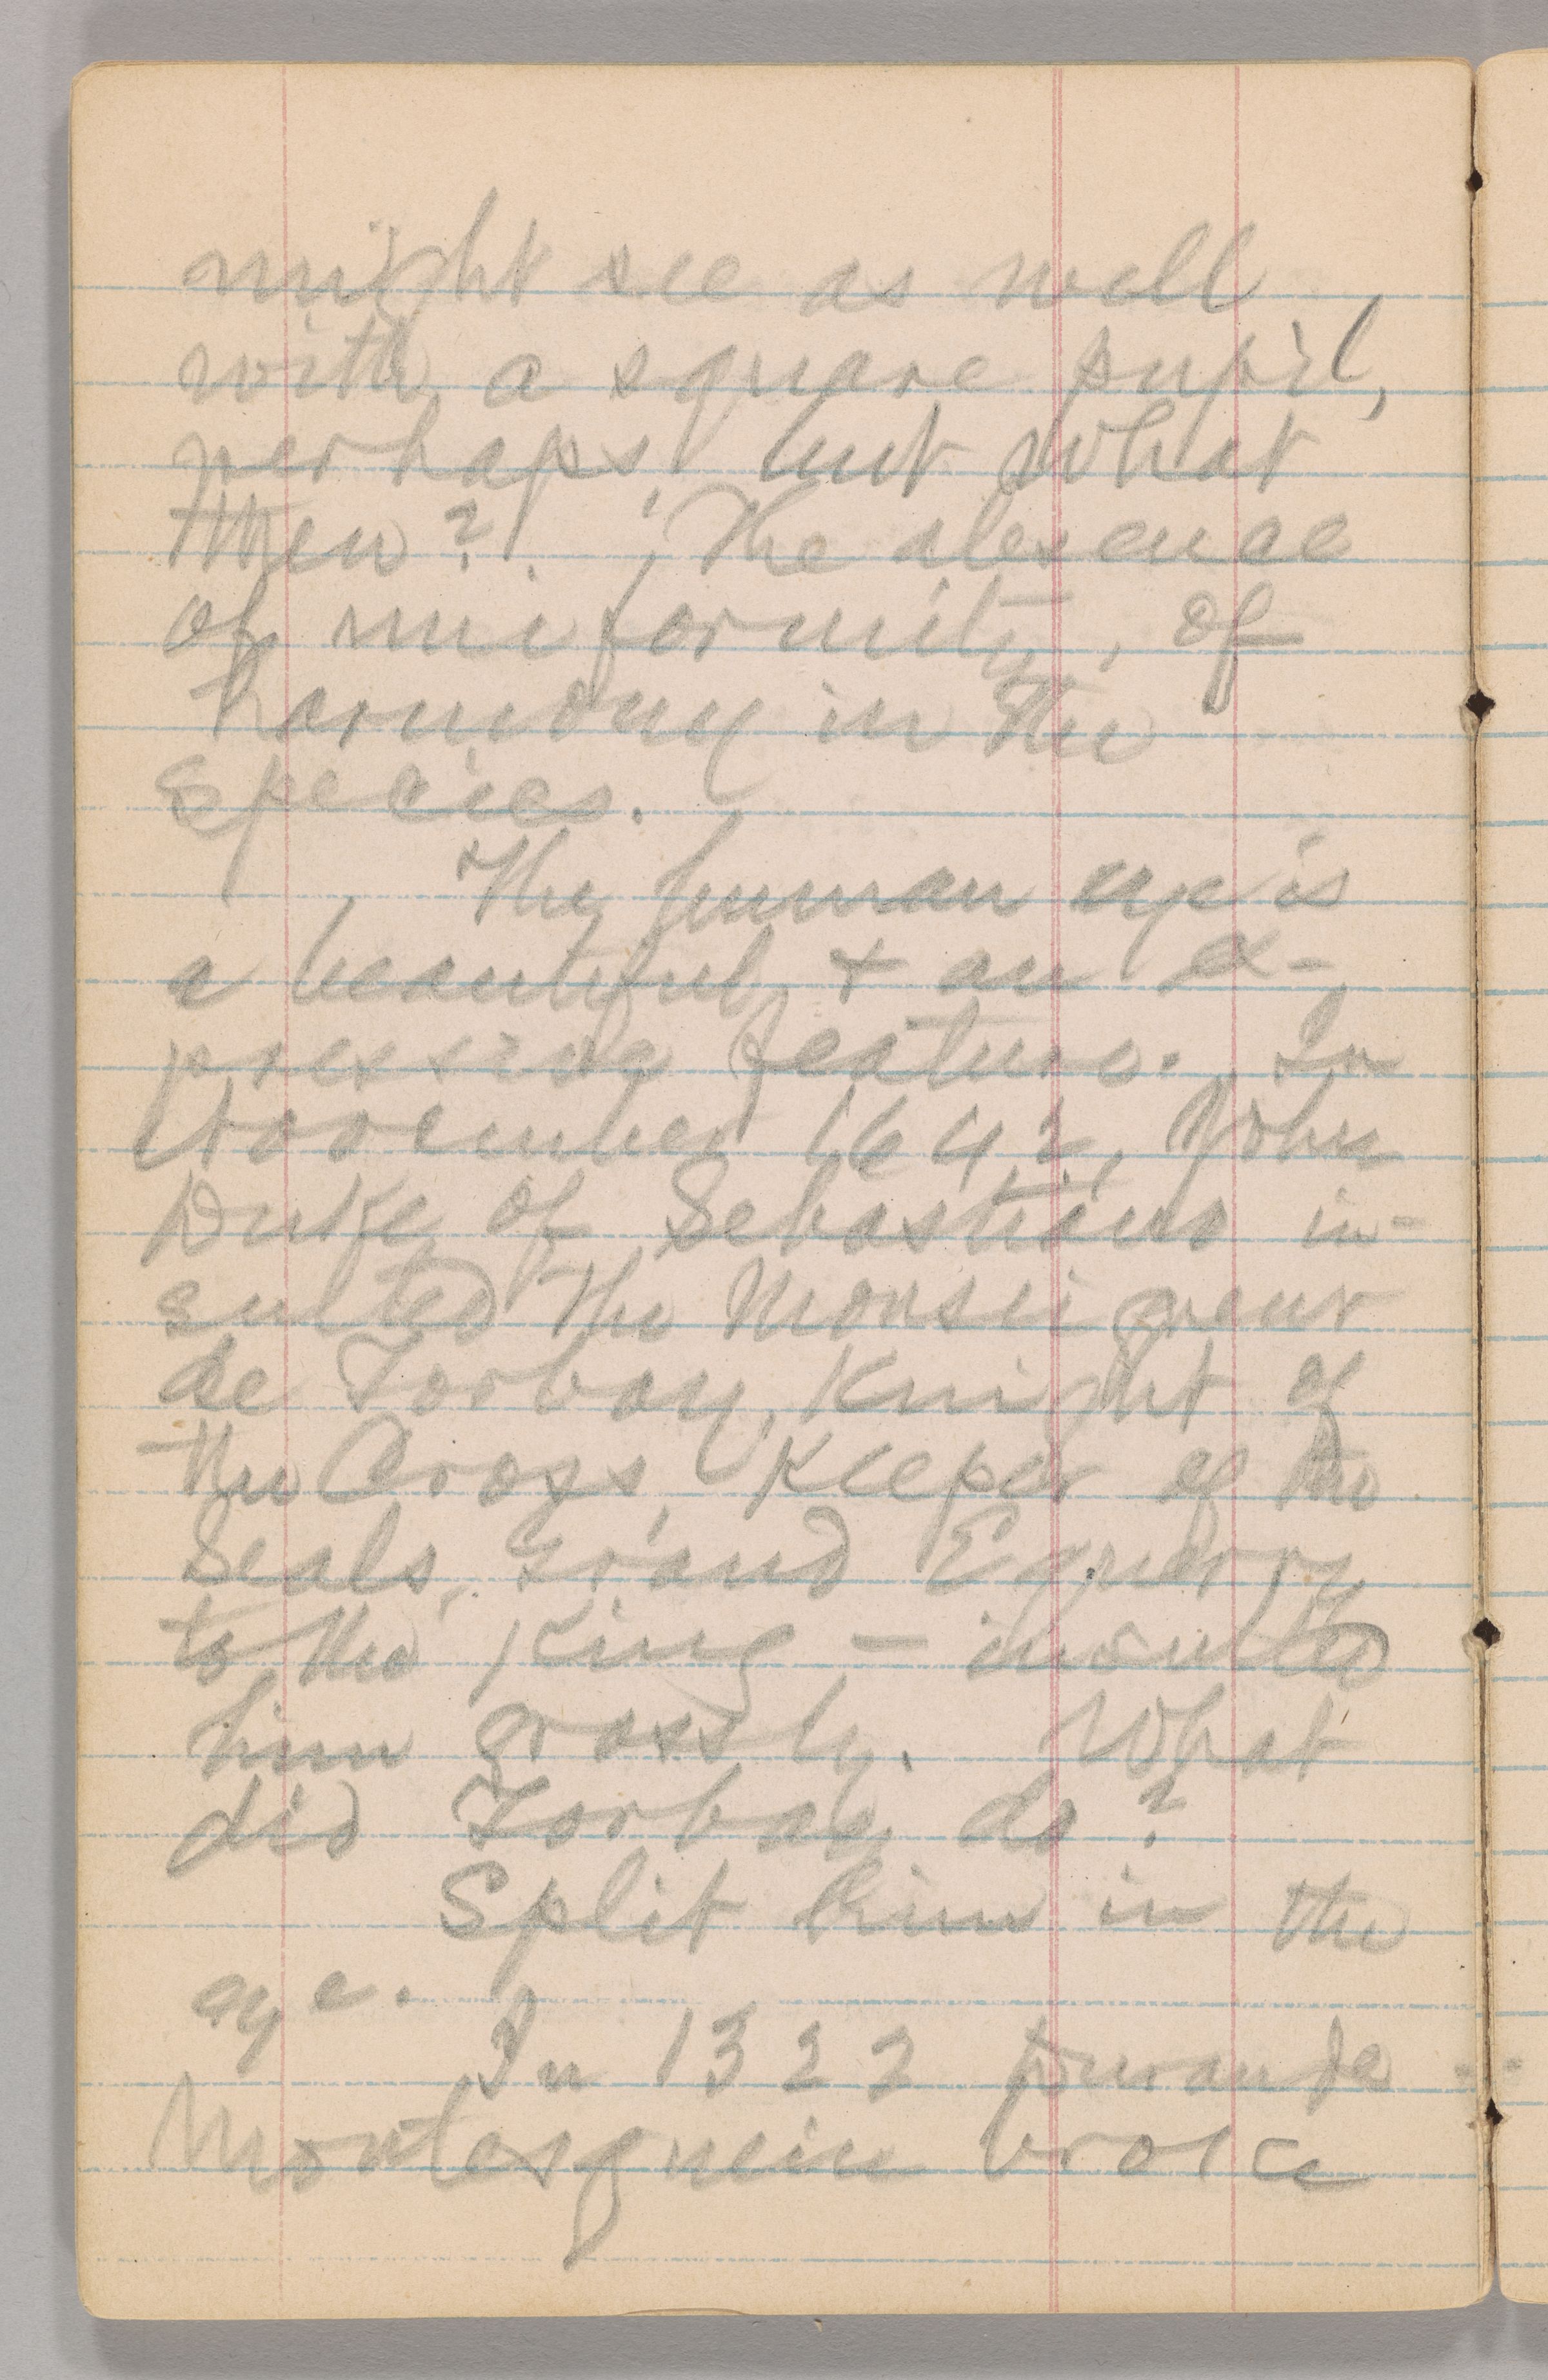 might see as well
with a square pupil,
perhaps, but what
then? The absence
of uniformity, of
harmony in the
species.
The human eye is
a beautiful & an ex-
pressive feature. In
November 1642, John
Duke of Sebastiano in-
sulted the Monseigneur
de Torbay, Knight of
the Cross, Keeper of the
Seals, Grand Equerry
to the King — insulted
him grossly. What
did Torbay do?
Split him in the
eye.
In 1322 Durande
Montesquieu broke